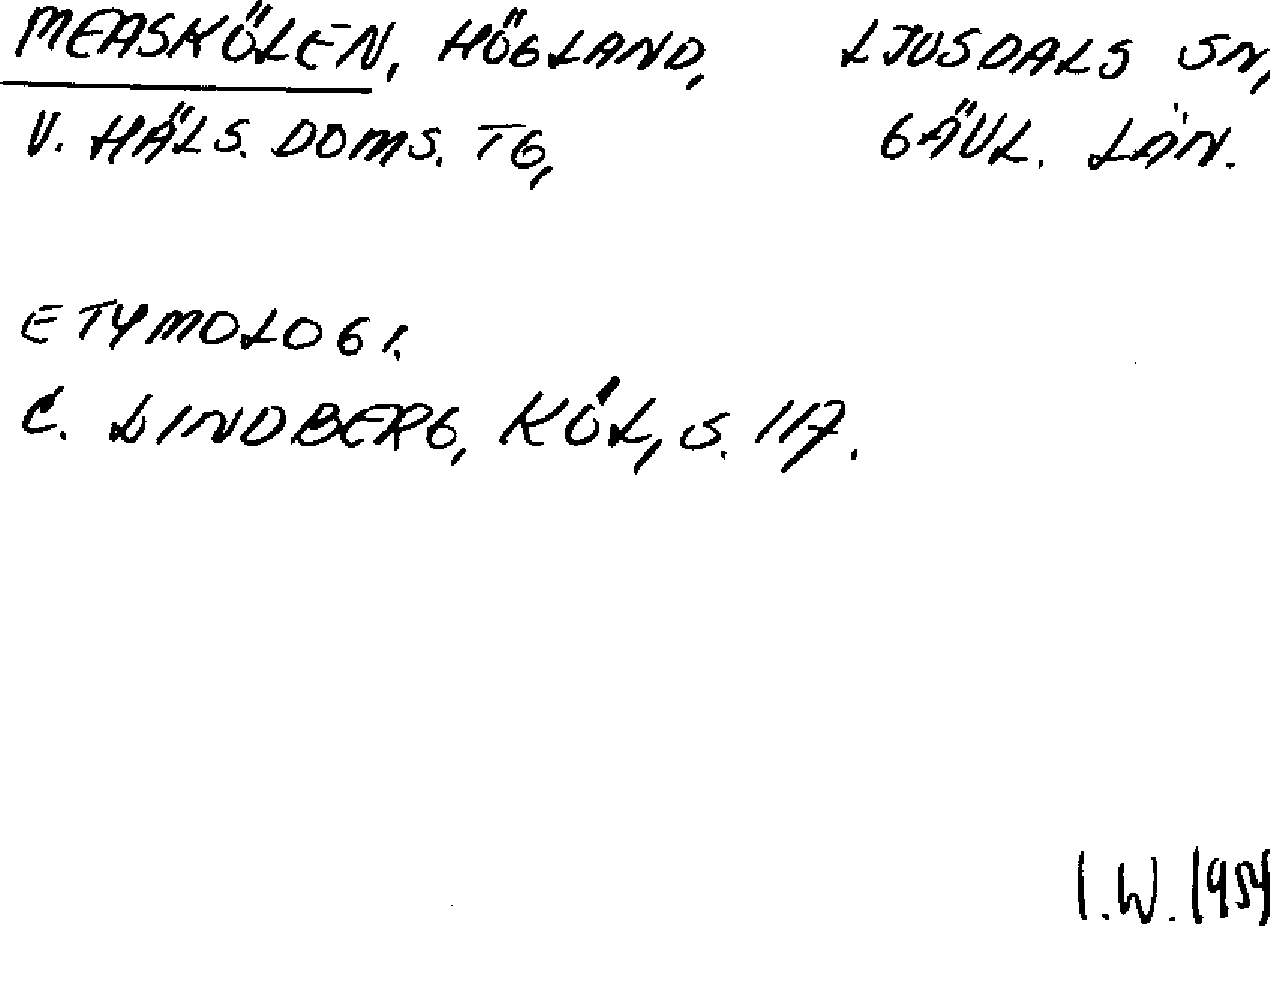 MEASKÖLEN, HÖGLAND, LJUSDALS SN,
V. HÄLS. DOMS. TG, GÄVL. LÄN.
ETYMOLOGI.
C. LINDBERG, KÖL, S. 117.
I.W. 1954